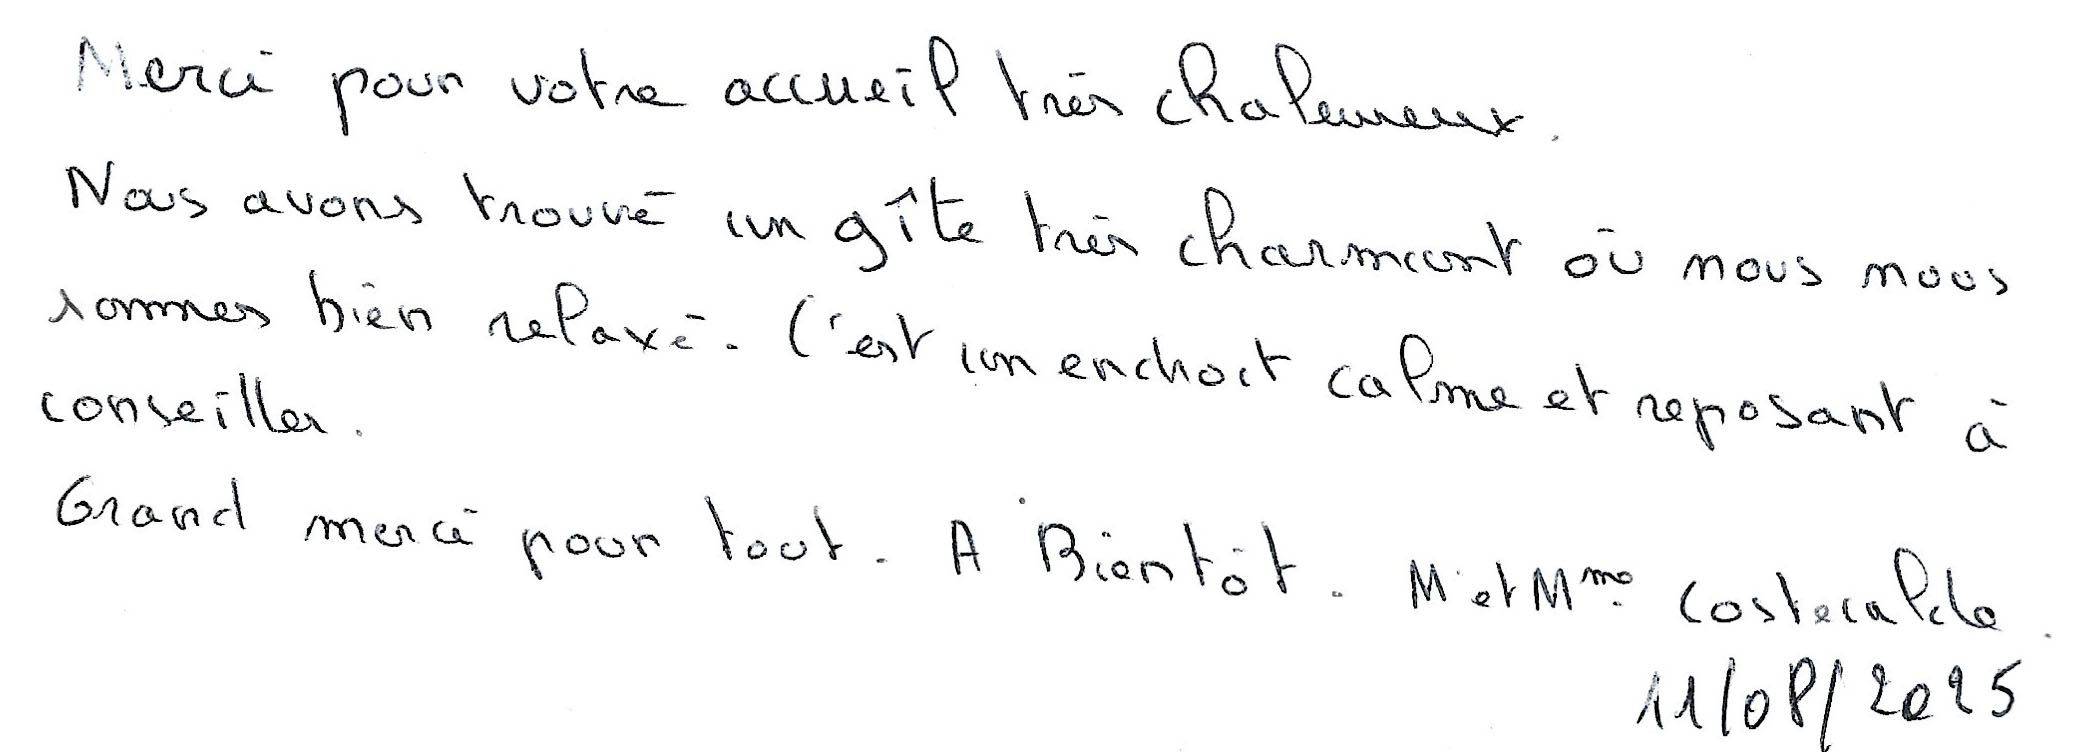 Merci pour votre accueil très chaleureux.
Nous avons trouvé un gîte très charmant où nous nous
sommes bien relaxé. C'est un endroit calme et reposant à
conseiller.
Grand merci pour tout. A Bientôt. M et Mme Costecalde.
11/08/2025